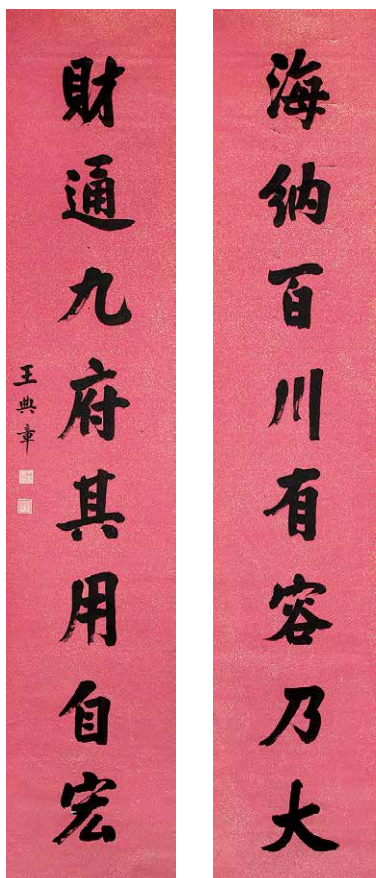 海納百川有容乃大
財通九府其用自宏
王典章